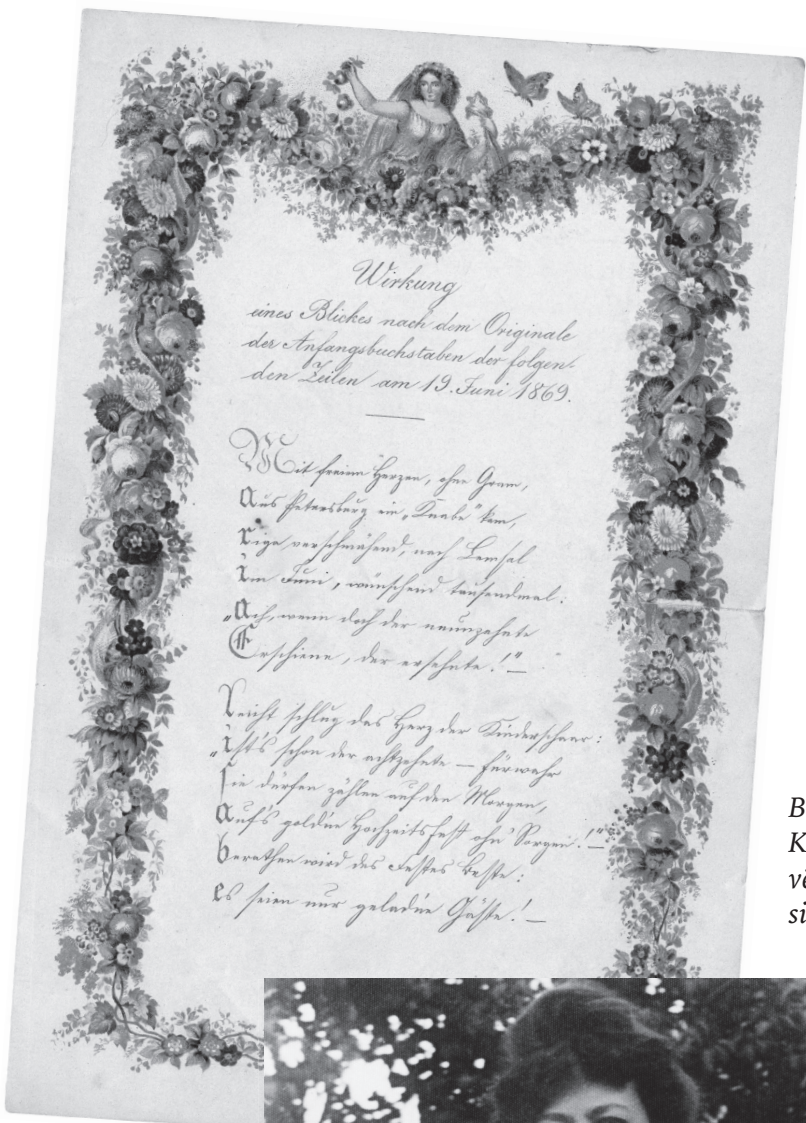 Wirkung
eines Blickes nach dem Originale
der Anfangsbuchstaben der folgen-
den Zeilen am 19. Juni 1869.
Mit freiem Herzen, ohne Gram,
Aus Petersburg ein „Knabe" kam,
Riga verschmähend, nach Lemsal
Im Juni, wünschend tausendmal:
„Ach, wenn doch der neunzehnte
Erschiene, der ersehnte!" —
Leicht schlug das Herz der Kinderschaar:
„Ist's schon der achtzehnte — fürwahr
Sie dürfen zählen auf den Morgen,
Auf's goldne Hochzeitsfest ohn' Sorgen!" —
Berathen wird des Festes Beste:
Es seien nur geladne Gäste! —
B
K
vē
si